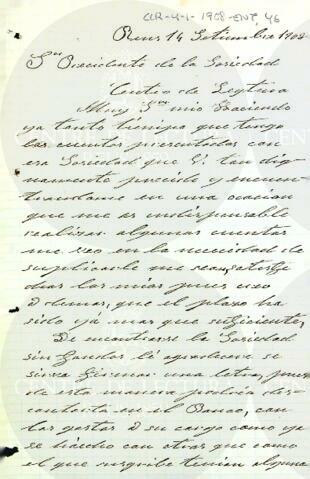 CLR-4-1-1908-ENT, 46
Reus 14 Setiembre 1908
Sr. Presidente de la Sociedad
Centro de Lectura
Muy Sr. mio Haciendo
ya tanto tiempo que tengo
las cuentas presentadas con
esa Sociedad que V. tan dig
namente preside y encon
trandome en una ocacion
que me es indispensable
realizar algunas cuentas
me veo en la necesidad de
suplicarle me sean satisfe
das las mias pues creo
Ademas, que el plazo ha
sido ya mas que suficiente,
De encontrarse la Sociedad
sin fondos le agradecere se
sirva firmar una letra, pues
de esta manera podria des
contarla en el Banco, con
los gastos a su cargo como ya
se ha hecho con otras que como
el que suscribe tenian alguna
CENTRE DE LECTURA